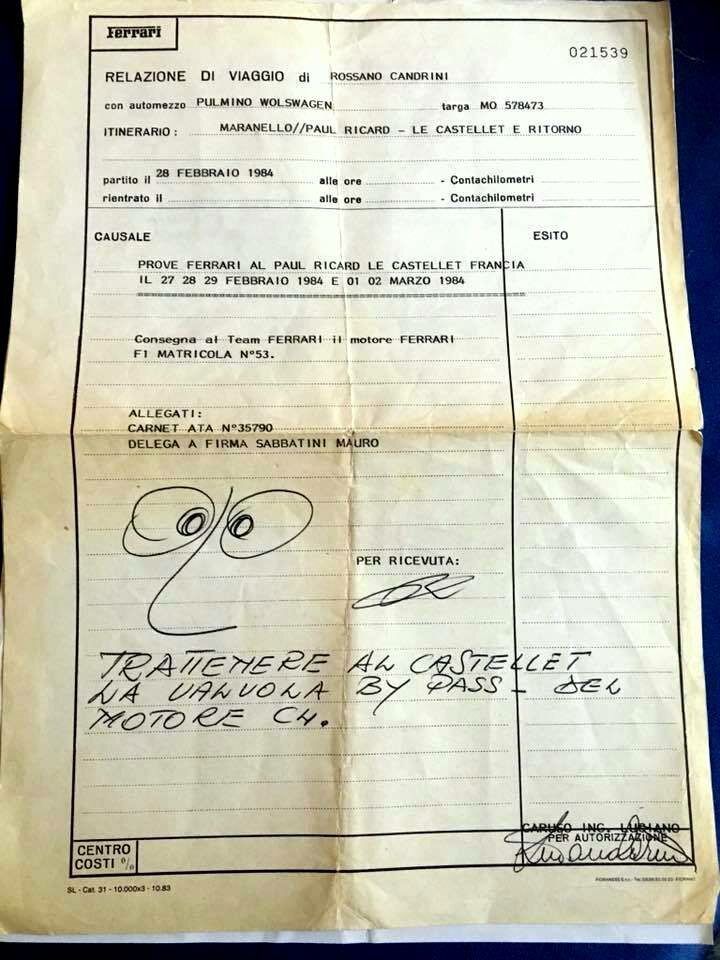 Ferrari
021539
RELAZIONE DI VIAGGIO di ROSSANO CANDRINI
con automezzo PULMINO WOLSWAGEN targa MO 578473
ITINERARIO : MARANELLO//PAUL RICARD - LE CASTELLET E RITORNO
partito il 28 FEBBRAIO 1984 alle ore - Contachilometri
rientrato il alle ore - Contachilometri
CAUSALE ESITO
PROVE FERRARI AL PAUL RICARD LE CASTELLET FRANCIA
IL 27 28 29 FEBBRAIO 1984 E 01 02 MARZO 1984
Consegna al Team FERRARI il motore FERRARI
F1 MATRICOLA N°53.
ALLEGATI:
CARNET ATA N°35790
DELEGA A FIRMA SABBATINI MAURO
PER RICEVUTA:
TRATTENERE AL CASTELLET
LA VALVOLA BY PASS - DEL
MOTORE C4.
CARUSO ING. LUCIANO
PER AUTORIZZAZIONE
CENTRO
COSTI %
SL - Cat. 31 - 10.000x3 - 10.83